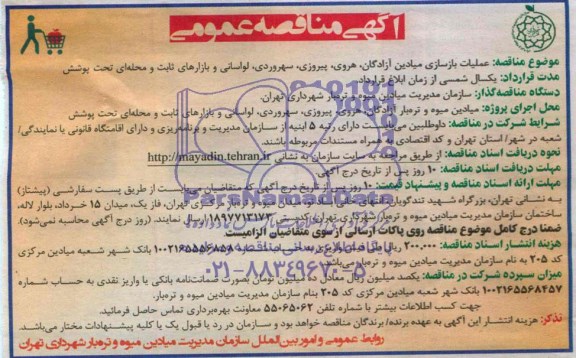 آگهی مناقصه عمومی
موضوع مناقصه: عملیات بازسازی میادین آزادگان، هروی، پیروزی، سهروردی، لواسانی و بازارهای ثابت و محله‌ای تحت پوشش
مدت قرارداد: یکسال شمسی از زمان ابلاغ قرارداد
دستگاه مناقصه‌گذار: سازمان مدیریت میادین میوه و تره‌بار شهرداری تهران
محل اجرای پروژه: میادین میوه و تره‌بار آزادگان، هروی، پیروزی، سهروردی، لواسانی و بازارهای ثابت و محله‌ای تحت پوشش
شرایط شرکت در مناقصه: داوطلبین می‌بایست دارای رتبه ۵ ابنیه از سازمان مدیریت و برنامه‌ریزی و دارای اقامتگاه قانونی یا نمایندگی/
شعبه در شهر/ استان تهران و کد اقتصادی به همراه مستندات مربوطه باشند.
نحوه دریافت اسناد مناقصه: از طریق مراجعه به سایت سازمان به نشانی http://mayadin.tehran.ir
مهلت دریافت اسناد مناقصه: ۱۰ روز پس از تاریخ درج آگهی
مهلت ارائه اسناد مناقصه و پیشنهاد قیمت: ۱۰ روز پس از تاریخ درج آگهی که متقاضیان می‌بایست از طریق پست سفارشی (پیشتاز)
به نشانی تهران، بزرگراه شهید تندگویان، فاز یک، میدان ۱۵ خرداد، بلوار لاله،
ساختمان سازمان مدیریت میادین میوه و تره‌بار شهرداری تهران، کدپستی ۱۸۹۷۷۱۳۱۷۳ ارسال نمایند. (روز درج آگهی محاسبه نمی‌شود).
ضمنا درج کامل موضوع مناقصه روی پاکات ارسالی از سوی متقاضیان الزامیست.
هزینه انتشار اسناد مناقصه: ۲۰۰,۰۰۰ ریال بانک شهر شعبه میادین مرکزی
کد ۲۰۵ به نام سازمان مدیریت میادین میوه و تره‌بار می‌باشد.
میزان سپرده شرکت در مناقصه: یکصد میلیون ریال معادل ده میلیون تومان بصورت ضمانت‌نامه بانکی یا واریز نقدی به حساب شماره
۱۰۰۲۱۶۵۵۶۸۴۵۷ بانک شهر شعبه میادین مرکزی کد ۲۰۵ بنام سازمان مدیریت میادین میوه و تره‌بار.
جهت کسب اطلاعات بیشتر با شماره تلفن ۵۵۰۶۵۰۶۲ معاونت بهره‌برداری تماس حاصل فرمائید.
تذکر: هزینه انتشار این آگهی به عهده برنده/ برندگان مناقصه خواهد بود و سازمان در رد یا قبول یک یا کلیه پیشنهادات مختار می‌باشد.
روابط عمومی و امور بین‌الملل سازمان مدیریت میادین میوه و تره‌بار شهرداری تهران
ParsNamadData
۰۲۱-۸۸۳۴۹۶۷۰-۵